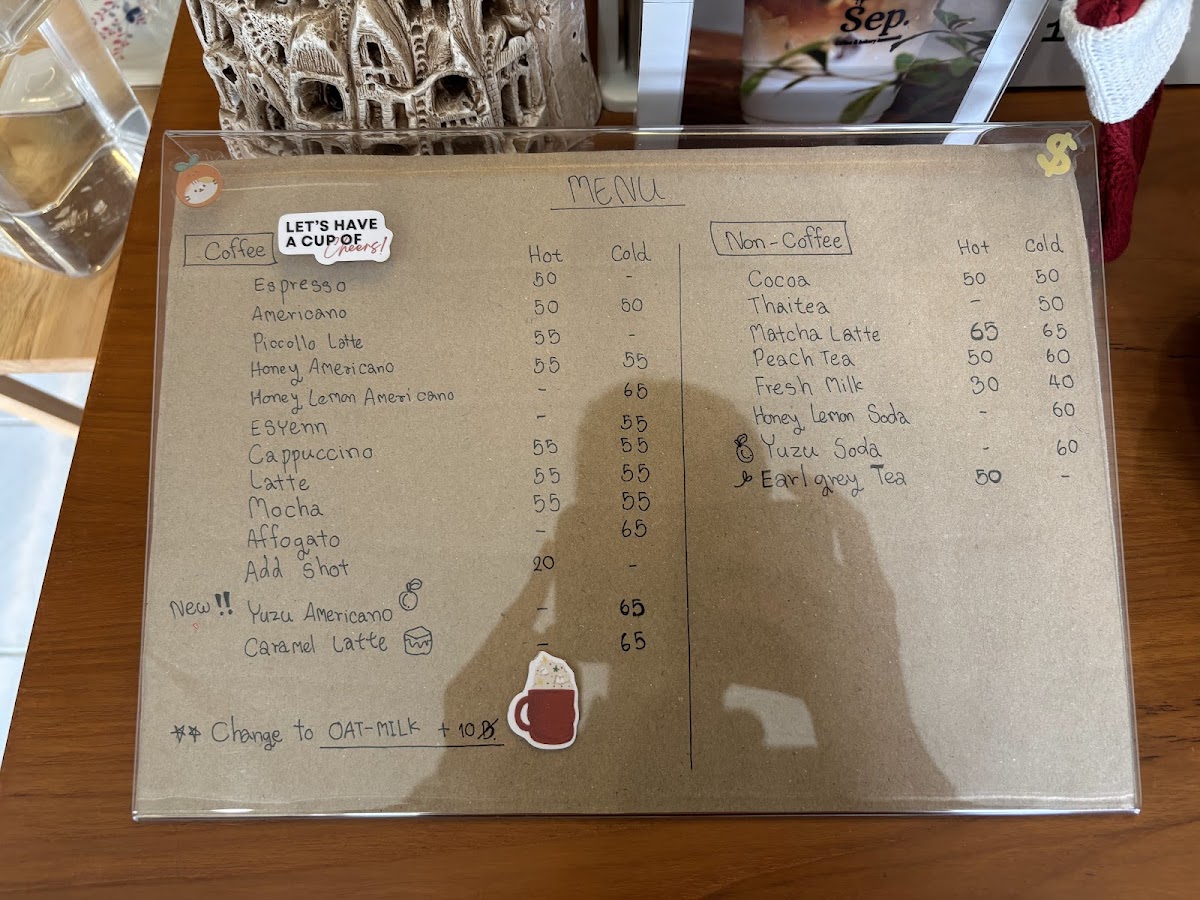 Sep.
MENU
LET'S HAVE
A CUP OF
Cheers!
Coffee Hot Cold
Espresso 50 -
Americano 50 50
Piccollo Latte 55 -
Honey Americano 55 55
Honey Lemon Americano - 65
ESYENN - 55
Cappuccino 55 55
Latte 55 55
Mocha 55 55
Affogato - 65
Add shot 20 -
New!! Yuzu Americano - 65
Caramel Latte - 65
** Change to OAT-MILK + 10 ฿.
Non-Coffee Hot Cold
Cocoa 50 50
Thaitea - 50
Matcha Latte 65 65
Peach Tea 50 60
Fresh Milk 30 40
Honey Lemon Soda - 60
Yuzu Soda - 60
Earl grey Tea 50 -
$